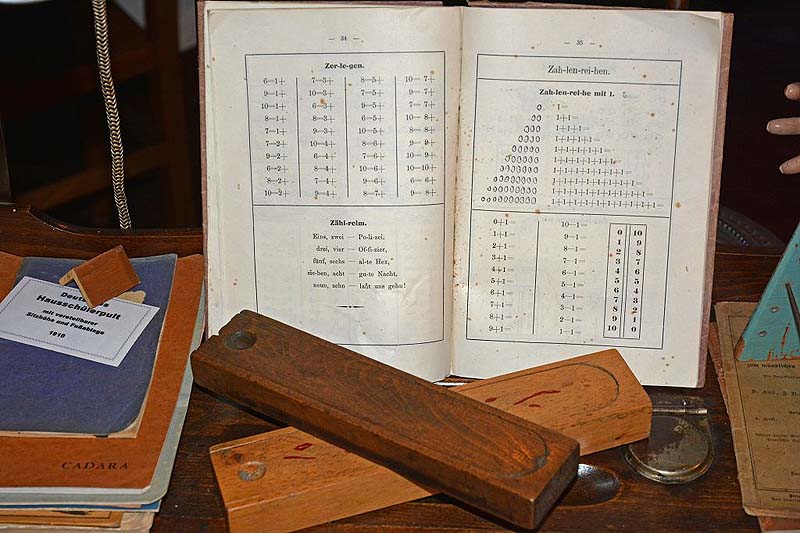 — 34 —
Zer-le-gen.
6=1+ 7=3+ 8=5+ 10= 7+
9=1+ 10=3+ 7=5+ 9= 7+
10=1+ 6=3+ 9=5+ 7= 7+
8=1+ 8=3+ 6=5+ 10= 8+
7=1+ 9=3+ 10=5+ 8= 8+
7=2+ 10=4+ 8=6+ 9= 8+
9=2+ 6=4+ 7=6+ 10= 9+
6=2+ 7=4+ 10=6+ 10=10+
8=2+ 8=4+ 9=6+ 9= 9+
10=2+ 9=4+ 8=7+ 9= 8+
Zähl-reim.
Eins, zwei — Po-li-zei.
drei, vier — Of-fi-zier,
fünf, sechs — al-te Hex,
sie-ben, acht — gu-te Nacht,
neun, zehn — laßt uns gehn!
— 35 —
Zah-len-rei-hen.
Zah-len-rei-he mit 1.
1=
1+1=
1+1+1=
1+1+1+1=
1+1+1+1+1=
1+1+1+1+1+1=
1+1+1+1+1+1+1=
1+1+1+1+1+1+1+1=
1+1+1+1+1+1+1+1+1=
1+1+1+1+1+1+1+1+1+1=
0+1= 10—1= 0 10
1+1= 9—1= 1 9
2+1= 8—1= 2 8
3+1= 7—1= 3 7
4+1= 6—1= 4 6
5+1= 5—1= 5 5
6+1= 4—1= 6 4
7+1= 3—1= 7 3
8+1= 2—1= 8 2
9+1= 1—1= 9 1
10 0
Hausschülerpult
mit verstellbarer
Sitzhöhe und Fußablege
1910
CADARA